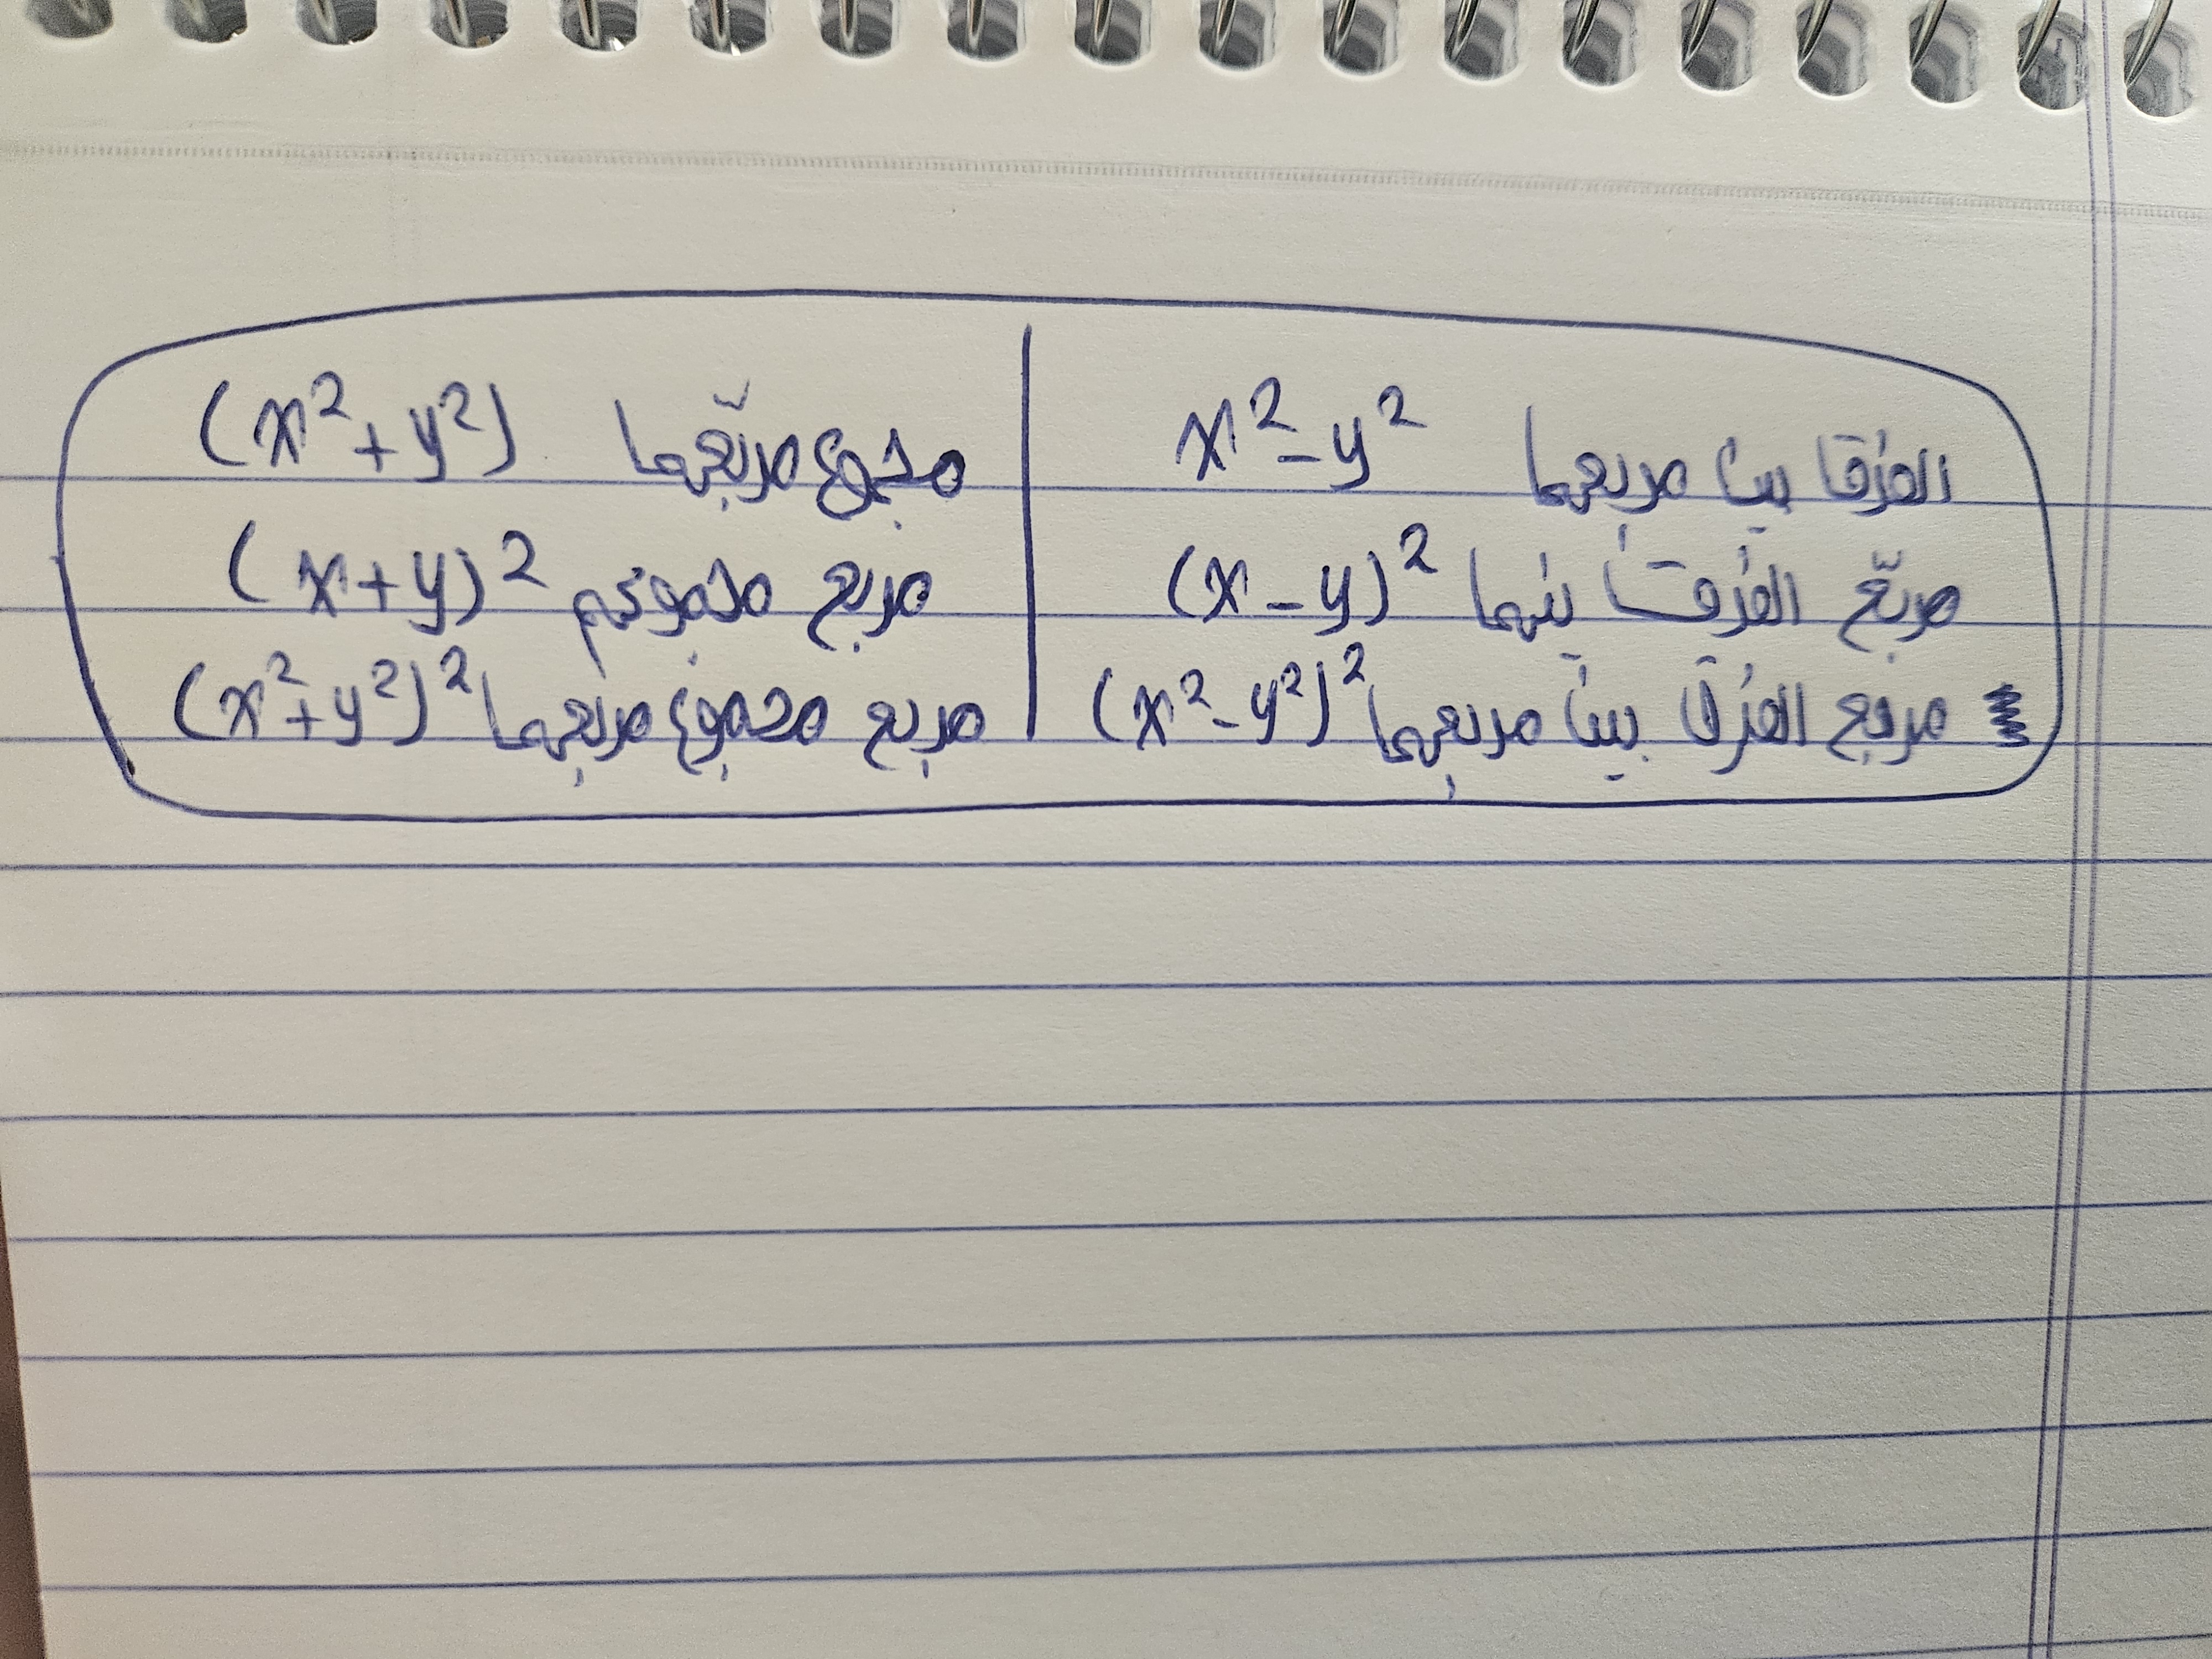 الفرق بين مربعهما x² - y²
مربّع الفرق بينهما (x - y)²
مربع الفرق بين مربعهما (x² - y²)²
مجموع مربّعهما (x² + y²)
مربع مجموعهم (x + y)²
مربع مجموع مربعهما (x² + y²)²